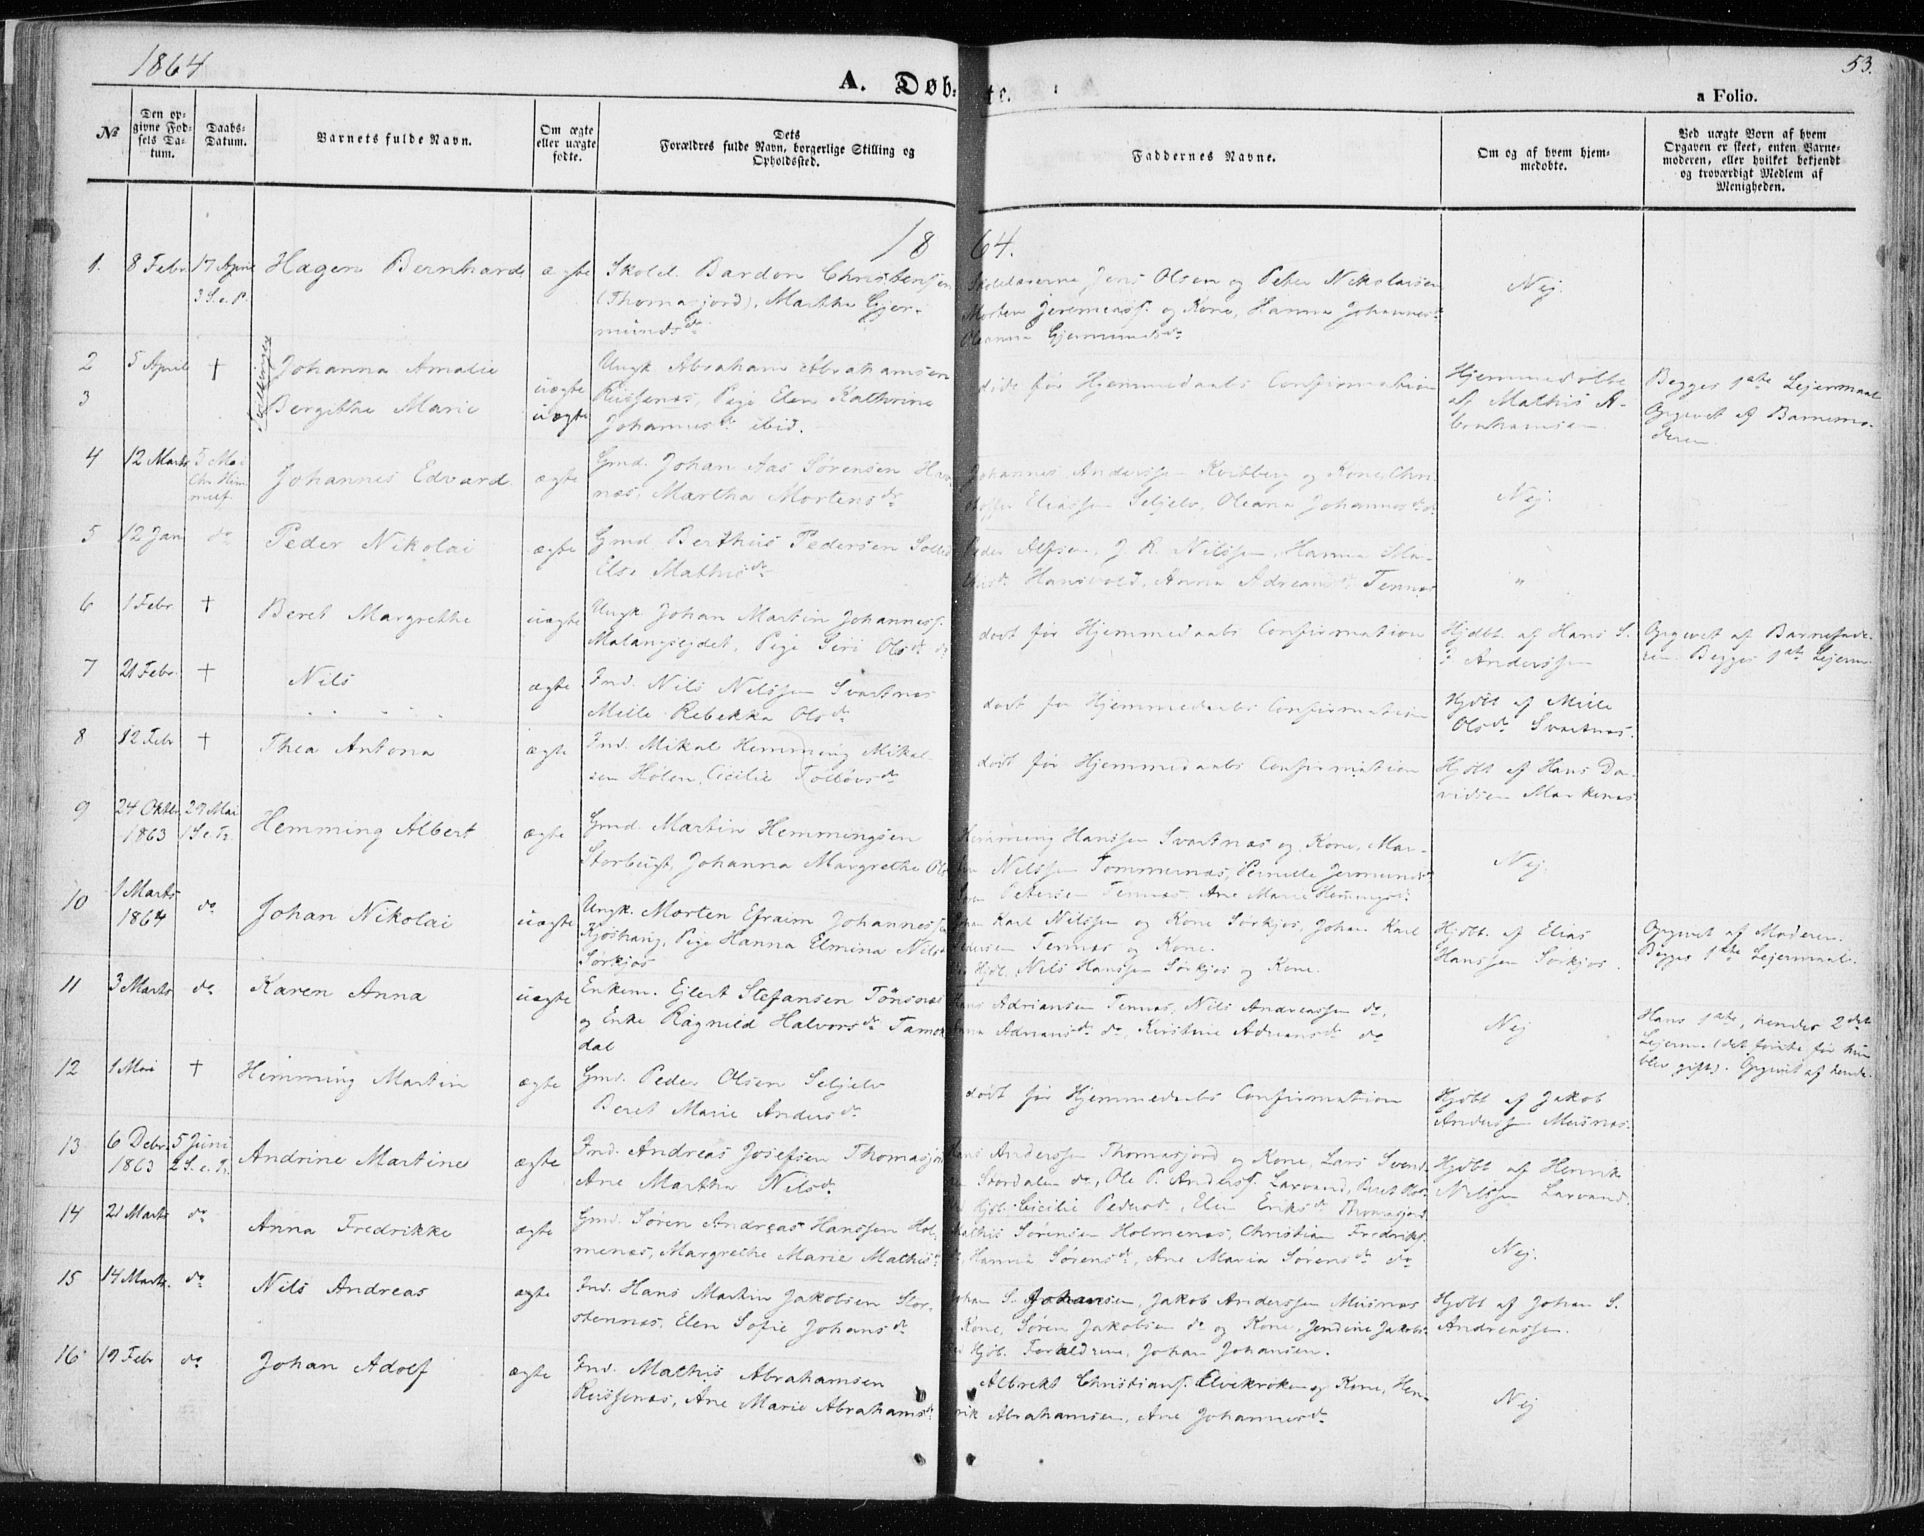 1864
53.
A. Døb-
te.
a Folio.
№
Den op-
givne Fød-
sels Da-
tum.
Daabs-
Datum.
Barnets fulde Navn.
Om ægte
eller uægte
fødte.
Dets
Forældres fulde Navn, borgerlige Stilling og
Opholdssted.
Faddernes Navne.
Om og af hvem hjem-
medøbte.
Ved uægte Børn af hvem
Opgaven er skeet, enten Barne-
moderen, eller hvilket bekjendt
og troværdigt Medlem af
Menigheden.
18
64.
1. 8 Febr. 17 April Hagen Bernhard ægte Skolel. Bardon Christensen
3 S. e. P. (Thomasjord), Martha Gjer-
munds dr
Skolelærerne Jens Olsen og Peter Nikolaisen
Morten Jeremiass. og Kone, Hanna Johannesdr
Oleanna Gjermundsdr
Nej.
2 5 April † Tvillinger Johanna Amalie uægte Ungk. Abraham Abrahamsen
3 Bergitthe Marie uægte Russenes, Pige Elen Kathrine
Johannesdr ibid.
døde før Hjemmedaabs Confirmation
Hjemmedøbte
af Mathis A-
brahamsen
Begges 1ste Lejermaal
Opgivet af Barnemo-
deren
4 12 Marts 5 Mai Johannes Edvard ægte Gmd. Johan Aas Sørensen
Chr. Him-
melf.
næs, Martha Mortensdr
Johannes Anderssen og Kone, Chri-
stoffer Eliassen Seljelv, Oleana Johannesdr
Nej.
5 12 Jan do Peder Nikolai ægte Gmd Berthus Pedersen
Else Mathisdr
Peder Alfsen, J. R. Nilssen, Hanna Ma-
thisdr Hansvold, Anna Adreansdr Tennæs
"
6 1 Febr. † Beret Margrethe uægte Ungk. Johan Martin Johanness.
Malangsejdet, Pige Siri Olsdr do
død før Hjemmedaabs Confirmation
Hjdbt. af Hans S.
Anderssen
Opgivet af Barnefade-
ren. Begges 1ste Lejerm.
7 21 Febr. † Nils ægte Ind. Nils Nilssen Svartnæs
Mille Rebekka Olsdr
død før Hjemmedaabs Confirmation
Hjdbt af Mille
Olsdr Svartnæs.
8 12 Febr † Thea Antona ægte Ind. Mikal Hemming Mikal-
sen Holen, Cicilie Tolløvsdr
død før Hjemmedaabs Confirmation
Hjdbt af Hans Da-
vidsen Markenæs
9 24 Oktbr 27 Mai Hemming Albert ægte Gmd. Martin Hemmingsen
1863 1 S. e. Tr. Storbugt, Johanna Margrethe Ols
Hemming Hanssen Svartnæs og Kone, Mar-
Nilssen Tommernæs, Pernille Jermundsdr
Petersen Tennæs, Ane Marie Hemmingsdr
Nej.
10 1 Marts do Johan Nikolai uægte Ungk. Morten Efraim Johannessen
1864 Kjoshaug, Pige Hanna Elmina Nilsdr
Sørkjos
Karl Nilssen og Kone Sørkjos, Johan Karl
Pedersen Tennæs og Kone.
Hjdb. Nils Hanssen Sørkjos og Kone.
Hjdbt. af Elias
Hanssen Sørkjos.
Opgivet af Moderen.
Begges 1ste Lejermaal.
11 3 Marts do Karen Anna uægte Enkem. Ejlert Stefansen Tønsnæs
og Enke Ragnild Halvorsdr Tamok
dal
Hans Adriansen Tennæs, Nils Andreassen do,
Anna Adriansdr do, Kirstine Adriansdr do
Nej
Hans 1ste, hendes 2det
Lejerm. (det første før hun
blev gift). Opgivet af hende.
12 1 Mai † Hemming Martin ægte Gmd. Peder Olsen Seljelv
Beret Marie Andersdr
død før Hjemmedaabs Confirmation
Hjdbt af Jakob
Anderssen Musnæs.
13 6 Debr. 5 Juni Andrine Martine ægte Ind. Andreas Josefsen Thomasjord
1863 2 S. e. Tr. Ane Martha Nilsdr
Hans Anderssen Thomasjord og Kone, Lars Svend
Stordalen do, Ole P. Anderss. Larvand, Beret Ols
Hjdb. Cicilie Pedersdr, Elen Eriksdr Thomasjord
Hjdbt af Henrik
Nilssen Larvand.
14 21 Marts do Anna Fredrikke ægte Gmd. Søren Andreas Hanssen Hol-
menæs, Margrethe Marie Mathisdr
Mathis Sørensen Holmenæs, Christian Fredriks.
Hanna Sørensdr, Ane Maria Sørensdr do
Nej.
15 14 Marts. do Nils Andreas ægte Ind. Hans Martin Jakobsen Stor-
stennæs, Elen Sofie Johansdr
Johan S. Johansen, Jakob Anderssen Musnæs
Kone, Søren Jakobsen do og Kone, Jendine Jakobs.
Hjdb. Forældrene, Johan Johansen.
Hjdbt af Johan S.
Andreassen.
16 19 Febr do Johan Adolf ægte Ind. Mathis Abrahamsen
Russenæs, Ane Marie Abrahamsdr
Albrekt Christians. Elvekroken og Kone, Hen-
rik Abrahamsen, Ane Johannesdr
Nej